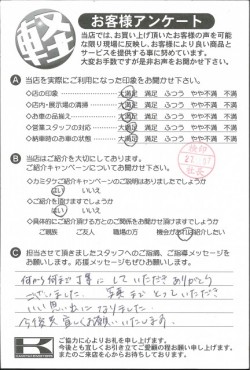 軽
お客様アンケート
当店では、お買い上げ頂いたお客様の声を可能
な限り現場に反映し、お客様により良い商品と
サービスを提供する事に努めています。
大変お手数ですが是非お声をお聞かせ下さい。
A 当店を実際にご利用になった印象をお聞かせ下さい。
◇店の印象 大満足 満足 ふつう やや不満 不満
◇店内・展示場の清掃 大満足 満足 ふつう やや不満 不満
◇お車の品揃え 大満足 満足 ふつう やや不満 不満
◇営業スタッフの対応 大満足 満足 ふつう やや不満 不満
◇納車時のお車の状態 大満足 満足 ふつう やや不満 不満
B 当店はご紹介を大切にしております。
ご紹介キャンペーンについてお聞かせ下さい。
◇カミタケご紹介キャンペーンのご説明はありましたでしょうか
はい いいえ
◇ご紹介を頂けますでしょうか
はい いいえ
◇具体的にご紹介頂ける方とのご関係をお聞かせ頂けますでしょうか
ご親族 ご友人 職場の方 機会があれば紹介したい
C 担当させて頂きましたスタッフへのご指導、ご指導メッセージを
お願いします。応援メッセージもぜひお願いします。
何から何まで丁寧にしていただきありがとう
ございました。写真までとっていただき
いい思い出になりました。
今後共宜しくお願いいたします。
K
ご協力に心よりお礼を申し上げます。
今後とも宜しくお引き立てご愛顧の程お願い申し上げます。
またのご来店を心からお待ちしております。